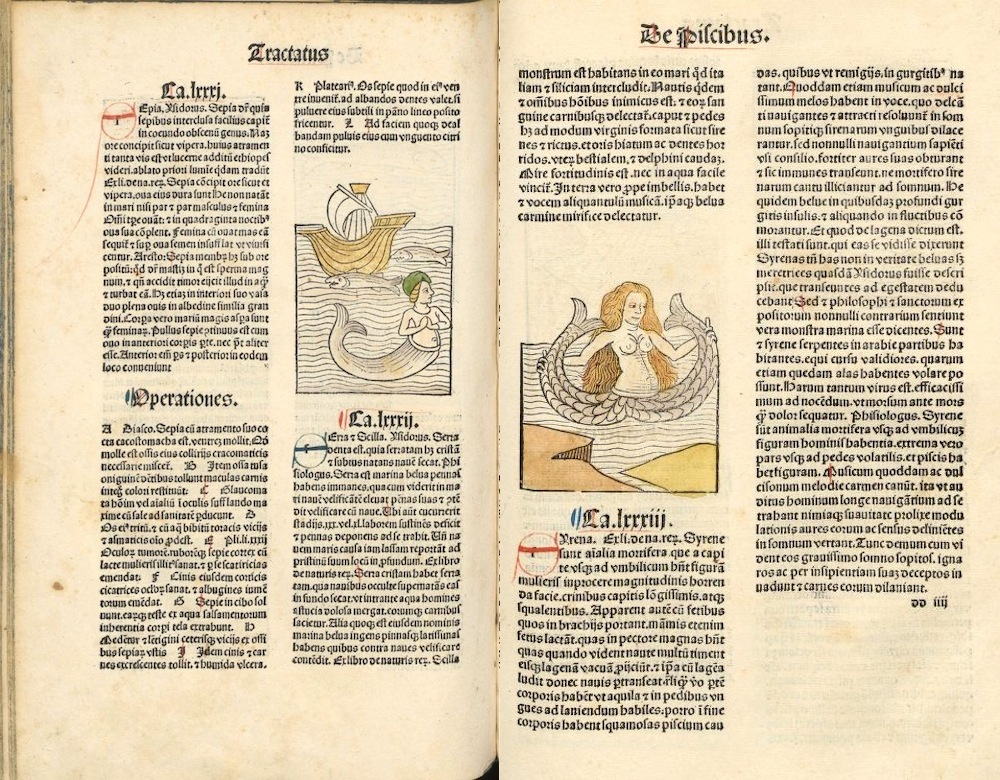 Tractatus
Ca.lxxxj.
Epia. Ysidorus. Sepia dr̄ quia
sepibus interclusa facilius capit̄
in coeundo obscenū genus. Naʒ
ore concipit sicut vipera. huius atramen
ti tanta vis est vt lucerne additū ethiopes
videri. ablato priori lumine q̄dam tradūt
Ex li. de na. reʒ. Sepia cōcipit ore sicut et
vipera. oua eius dura sunt
in mari nisi par t par masculus t femina
t in quadraginta noctibꝰ
oua sua cōplent. femina cū ouat mas eā
sequit̄ t sup oua semen insufflat vt viuifi
centur. Aresto. Sepia
num. t qn̄ accidit timor eijcit illud in aq̄
t turbat eā. etiaʒ in interiori suo vasa
duo plena ouis in albedine similia gran
dini.
ouo in anteriori corpis pte. nec p̄t aliter
esse. Anterior em̄ ps t posterior in eodem
loco conueniunt
Operationes.
A Diasco. Sepia cū atramento suo co
cta cacostomacha est. ventreʒ mollit.
molle est ossis eius collirijs
necessarie miscet̄. B Item ossa
colori restituūt. C Glaucoma
xime cū sale ad sanitatē pducunt. D
Os t cū aq̄ bibitū toracis vicijs
t asmaticis oīo pdest. E Pli.li.xxxij
Oculoʒ tumorē. ruboreqʒ. sepie cortex cū
lacte mulieris illitꝰ sanat. t p se scaricias
emendat. F Cinis eiusdem corticis
cicatrices oculoʒ sanat. t albugines t inuē
torum emēdat. G Sepie in cibo sol
uunt. earqʒ teste ex aqua salsamentorum
inherentia corpi tela extrabunt. H
Medetur t lētigini ceterisqʒ vicijs ex ossi
bus sepiaʒ vstis I Idem cinis t car
nes excrescentes tollit. t humida vlcera.
K Plateariꝰ. Os sepie quod in eiꝰ ven
tre inuenit̄. ad albandos dentes valet. si
puluere eius subtili in pāno lineo posito
fricentur. L Ad faciem quoqʒ deal
bandam puluis eius cum vnguento citri
no conficitur.
Ca.lxxxij.
Erra t Scilla. Ysidorus. Serra
denta est. quia serratam hʒ cristā
t subtus natans nauē secat. Phi
siologus. Serra est marina belua pennas
habens immanes. qua cum viderit in ma
ri nauē velificātē eleuat pēnas suas t ptē
dit velificare cū naue. Ubi aūt cucurrerit
stadijs.xxx.vel.xl.laborem sustinēs deficit
t pennas deponens ad se trahit. Vn̄ na
uem maris causa iam lassam reportāt ad
pristinū suum locū in pfundum. Ex libro
de naturis reʒ. Serra cristam habet serra
tam. qua nauibus occulte supernatās eas
in fundo secat. vt intrante aqua homines
astucia dolosa mergat. eorumqʒ carnibus
sacietur. Alia quoqʒ est eiusdem nominis
marina belua ingens pinnasqʒ latissimas
habens quibus contra naues velificare
contēdit. Ex libro de naturis reʒ. Scilla
De Piscibus.
monstrum est habitans in eo mari qd̄ ita
liam t siciliam intercludit. Nautis qdem
t oībus hōibus inimicus est. t eoʒ san
guine carnibusqʒ delectat̄. caput t pedes
hʒ ad modum virginis formata sicut sire
nes t rictus. et oris hiatum ac dentes hor
ridos. vteʒ bestialem. t delphini caudaʒ.
Mire fortitudinis est. nec in aqua facile
vincit̄. In terra vero ppe imbellis. habet
t vocem aliquantulū musicā. ip̄aqʒ belua
carmine mirifice delectatur.
Ca.lxxxiij.
Yrena. Ex li. de na. reʒ. Syrene
sunt aīalia mortifera. que a capi
te vsqʒ ad vmbilicum hn̄t figurā
mulieris inprocere magnitudinis horren
da facie. crinibus capitis lōgissimis. atqʒ
squalentibus. Apparent autē cū fetibus
quos in brachijs portant. māmis etenim
fetus lactāt. quas in pectore magnas hn̄t
quas quando vident naute multū timent
eisqʒ lagenā vacuā pijciūt. t ip̄a cū lagēa
ludit donec nauis ptranseat. rliqʒ vo ptē
corporis habēt vt aquila t in pedibus vn
gues ad laniendum habiles. porro ī fine
corporis habent squamosas piscium cau
das. quibus vt remigijs. in gurgitibꝰ na
tant. Quoddam etiam musicum ac dulci
ssimum melos habent in voce. quo delcā
ti nauigantes t attracti resoluunt̄ in som
num sopitiqʒ sirenarum vnguibus dilace
rantur. sed nonnulli nauigantium sapiēti
vsi consilio. fortiter aures suas obturant
t sic immunes transeunt. ne mortifero sire
narum cantu illiciantur ad somnum. He
quidem belue in quibusdaʒ profundi gur
gitis insulis. t aliquando in fluctibus cō
morantur. Et quod de lagena dictum est.
illi testati sunt. qui eas se vidisse dixerunt
Syrenas tn̄ has non in veritate beluas sʒ
meretrices quasdā Ysidorus fuisse descri
psit. que transeuntes ad egestatem dedu
cebant. Sed t philosophi t sanctorum ex
positorum nonnulli contrarium sentiunt
vera monstra marina esse dicentes. Sunt
t syrene serpentes in arabie partibus ha
bitantes. equi cursu validiores. quarum
etiam quedam alas habentes volare pos
sunt. Harum tantum virus est. efficacissi
mum ad nocēdum. vt morsum ante mors
qʒ dolor sequatur. Phisiologus. Syrene
sūt animalia mortifera vsqʒ ad vmbilicuʒ
figuram hominis habentia. extrema vero
pars vsqʒ ad pedes volatilis. et piscis ha
bet figuram. Musicum quoddam ac dul
cisonum melodie carmen canūt. ita vt au
ditus hominum longe nauigātium ad se
trahant nimiaqʒ suauitate prolixe modu
lationis aures eorum ac sensus deliniētes
in somnum vertant. Tunc demum cum vi
dent eos grauissimo somno sopitos. igna
ros ac per insipientiam suaʒ deceptos in
uadunt t carnes eorum dilaniant.
dd iiij